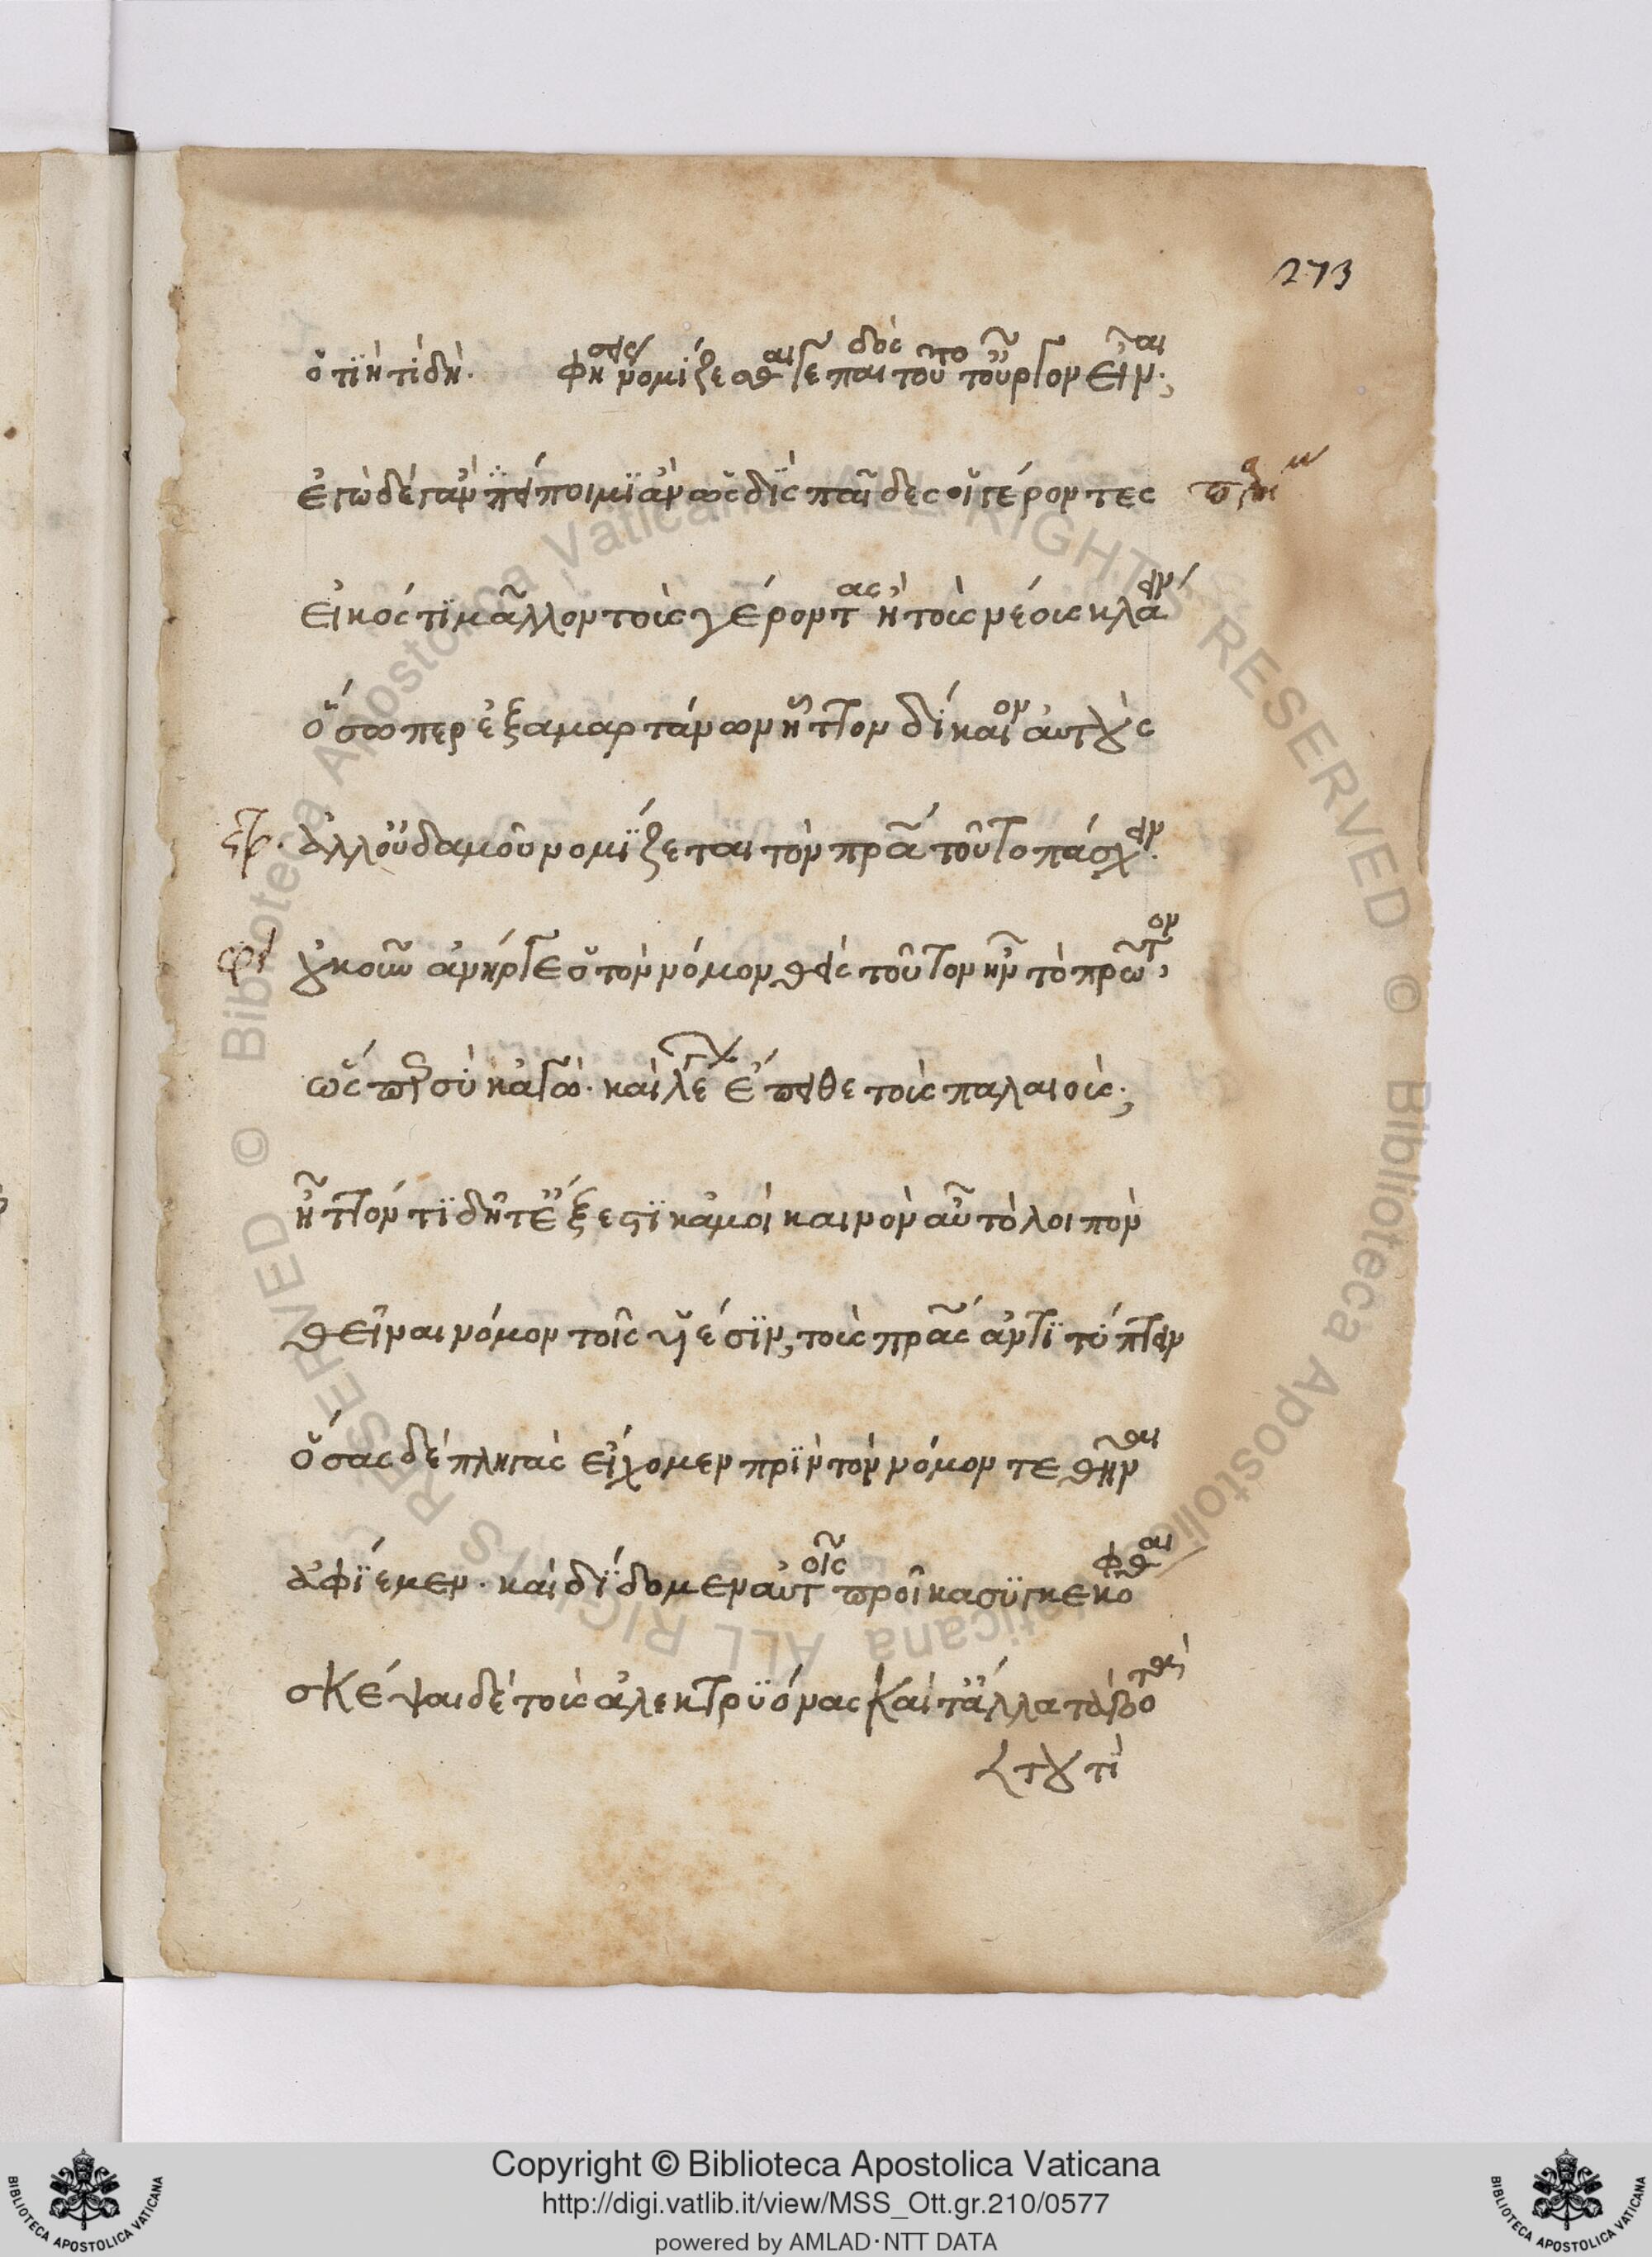 273
ὅτι ἢ τί δή. φήσεις νομίζεσθαί γε παιδὸς τοῦτο τοὖργον εἶναι;
ἐγὼ δέ γ' ἀντείποιμι ἂν ὡς δὶς παῖδες οἱ γέροντες
εἰκός τι μᾶλλον τοὺς γέροντας ἢ τοὺς νέους κλάειν
ὅσωπερ ἐξαμαρτάνων ἧττον δίκαιον αὐτοὺς
στρ. ἀλλ' οὐδαμοῦ νομίζεται τὸν πρα τοῦτο πάσχειν.
φι οὔκουν ἀνὴρ γε ὁ τὸν νόμον θεὶς τοῦτον ἦν τὸ πρῶτον,
ὥσπερ σὺ κἀγώ. καὶ λέγων ἔπειθε τοὺς παλαιούς;
ἧττόν τι δῆτ' ἔξεστι κἀμοὶ καινὸν αὖ τὸ λοιπὸν
θεῖναι νόμον τοῖς υἱέσιν, τοὺς πρας ἀντιτύπτειν
ὅσας δὲ πληγὰς εἴχομεν πρὶν τὸν νόμον τεθῆναι
ἀφίεμεν. καὶ δίδομεν αὐτοῖς προῖκα συγκεκόφθαι
σκέψαι δὲ τοὺς ἀλεκτρυόνας καὶ τἄλλα τὰ βοτὰ
τουτὶ
Copyright © Biblioteca Apostolica Vaticana
http://digi.vatlib.it/view/MSS_Ott.gr.210/0577
powered by AMLAD·NTT DATA